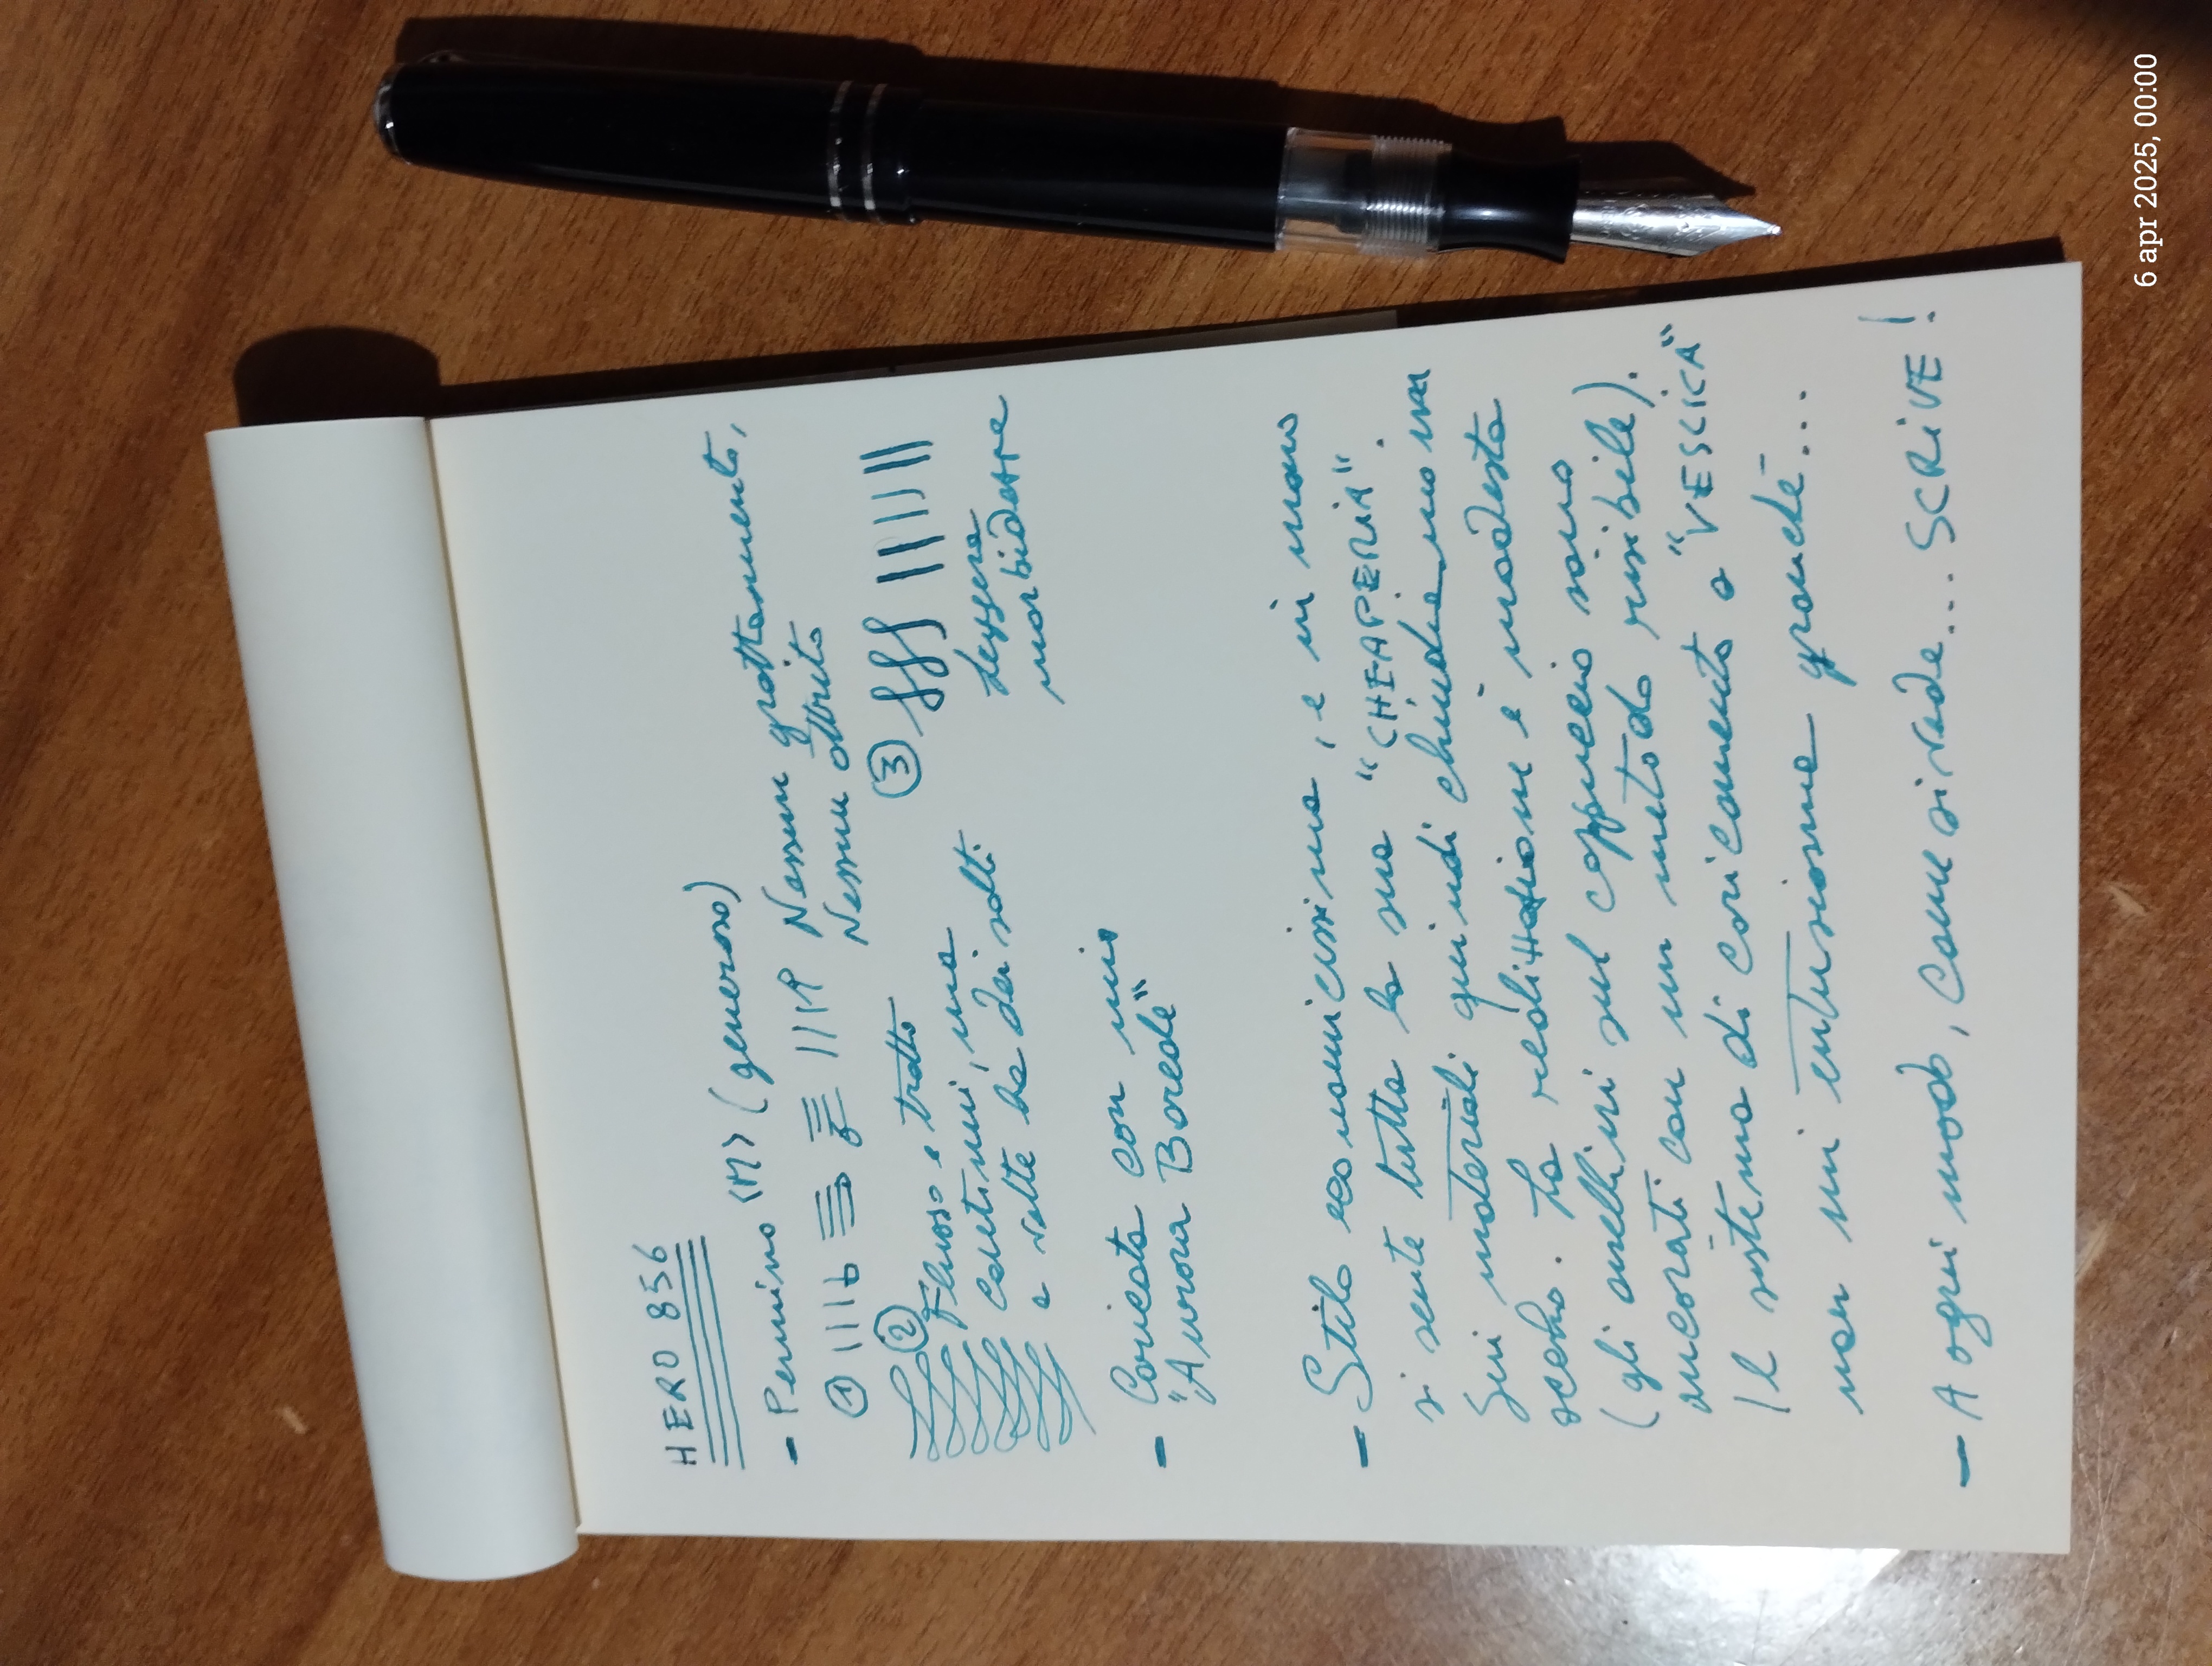 HERO 856
- Pennino <M> (generoso)
① Nessun grattamento,
Nessun attrito
② Flusso e tratto
continui, ma
a volte ha dei salti
③
leggera
morbidezza
- Caricata con mio
"Aurora Boreale"
- Stilo economicissima, e in mano
si sente tutta la sua "CHEAPERIA".
Sui materiali quindi chiudiamo un
occhio. La realizzazione è modesta
(gli anellini sul cappuccio sono
ancorati con un metodo risibile).
Il sistema di caricamento a "VESCICA"
non mi entusiasma granché...
- A ogni modo, come si vede... SCRIVE!
6 apr 2025, 00:00